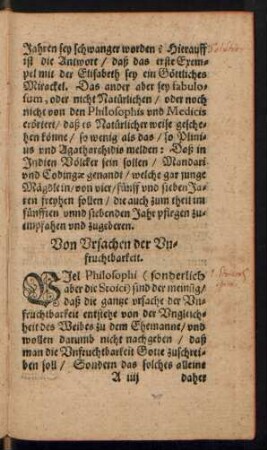 Jahren sey schwanger worden? Hierauff
ist die Antwort / daß das erste Exem-
pel mit der Elisabeth sey ein Göttliches
Mirackel. Das ander aber sey fabulo-
sum, oder nicht Natürlichen / oder noch
nicht von den Philosophis und Medicis
erörtert / daß es Natürlicher weise gesche-
hen könne / so wenig als das / so Plini-
us vnd Agatharchidis melden: Daß in
Indien Völcker sein sollen / Mandari
vnd Codingæ genandt / welche gar junge
Mägdlein / von vier / fünff vnd sieben Ja-
ren freyhen sollen / die auch zum theil im
fünfften vnnd siebenden Jahr pflegen zu-
empfahen vnd zugeberen.
Von Vrsachen der Vn-
fruchtbarkeit.
VIel Philosophi (sonderlich
aber die Stoici) sind der meinüg /
daß die gantze vrsache der Vn-
fruchtbarkeit entstehe von der Vngleich-
heit des Weibes zu dem Ehemanne / vnd
wollen darumb nicht nachgeben / daß
man die Vnfruchtbarkeit Gotte zuschrei-
ben soll / Sondern das solches alleine
A iiij daher